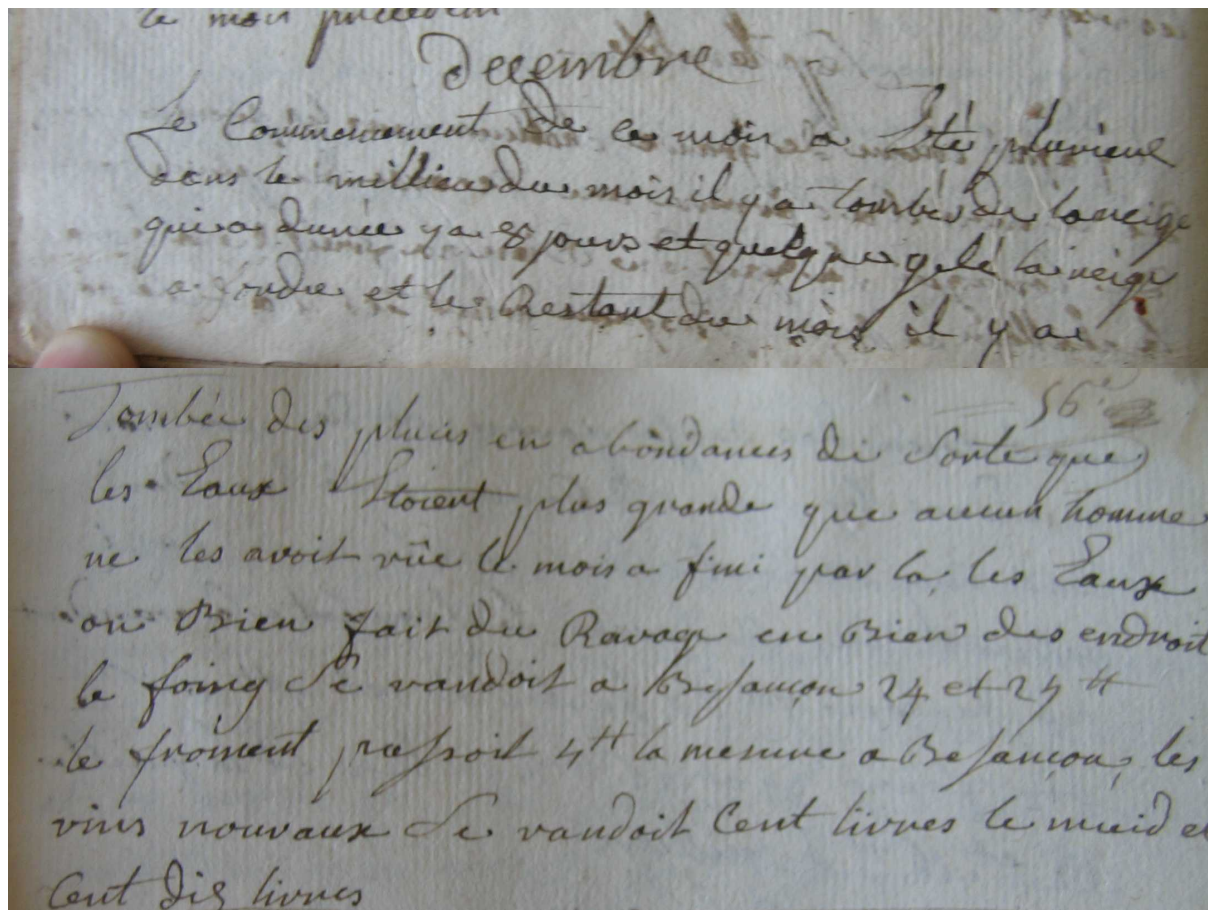 le mois precedent
decembre
Le Commencement de ce mois a Eté pluvieux
dans le millieu du mois il y a tombés de la neige
qui a durée ya 8 jours et quelque gelé la neige
a fondre et le Restant du mois il y a
Tombée des pluies en abondances de Sorte que
56
les Eaux Etoient plus grande que aucun homme
ne les avoit vüe le mois a fini par la les Eaux
on Bien fait du Ravage en Bien des endroit
le foing Se vandoit a Besançon 24 et 25 ₶
le froment passoit 4₶ la mesure a Besançon, les
vins nouvaux Se vandoit Cent livres le muid et
Cent dix livres